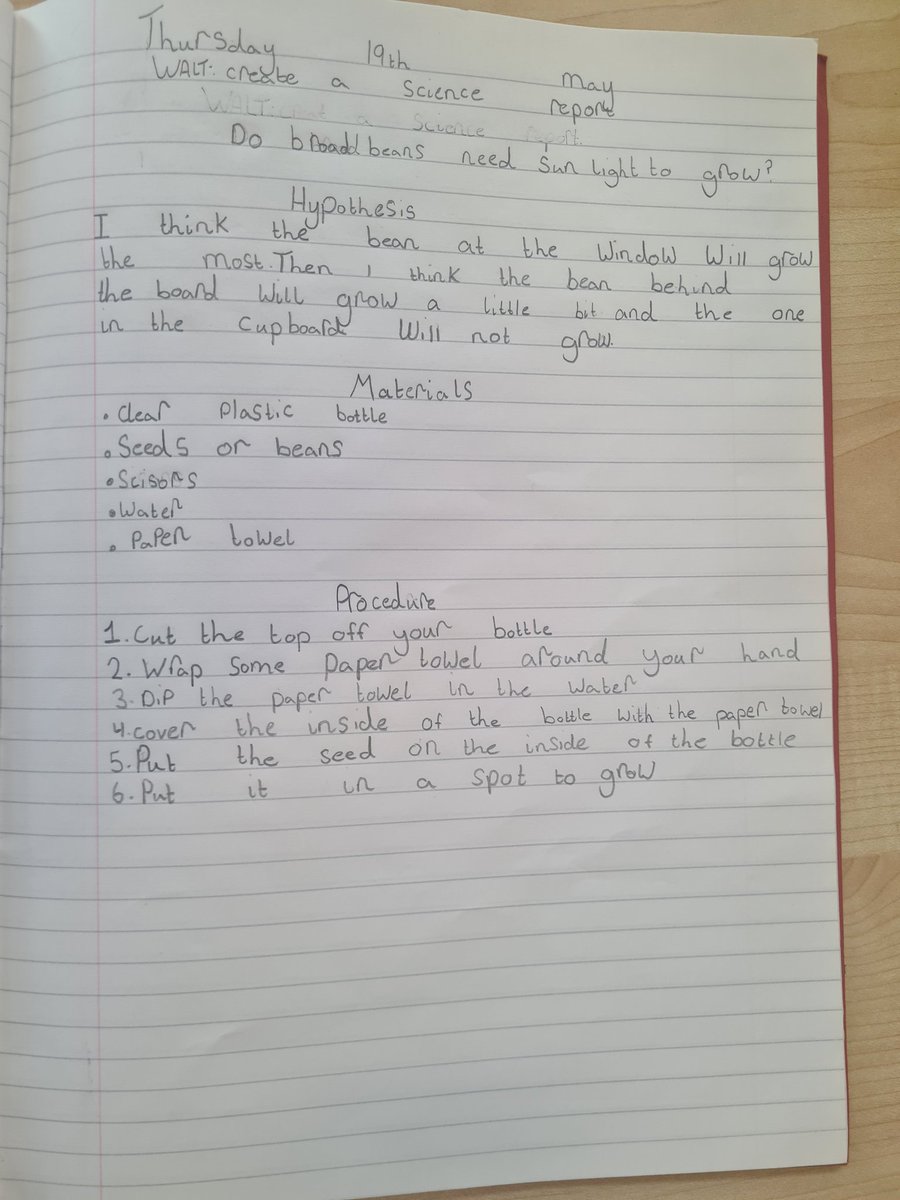 Thursday 19th May
WALT: create a science report
WALT: creat a science report.
Do broadd beans need sun light to grow?
Hypothesis
I think the bean at the window will grow
the most. Then I think the bean behind
the board will grow a little bit and the one
in the cupboard will not grow.
Materials
• Clear plastic bottle
• Seeds or beans
• Scisors
• Water
• Paper towel
Procedure
1. Cut the top off your bottle
2. Wrap some paper towel around your hand
3. Dip the paper towel in the water
4. cover the inside of the bottle with the paper towel
5. Put the seed on the inside of the bottle
6. Put it in a spot to grow